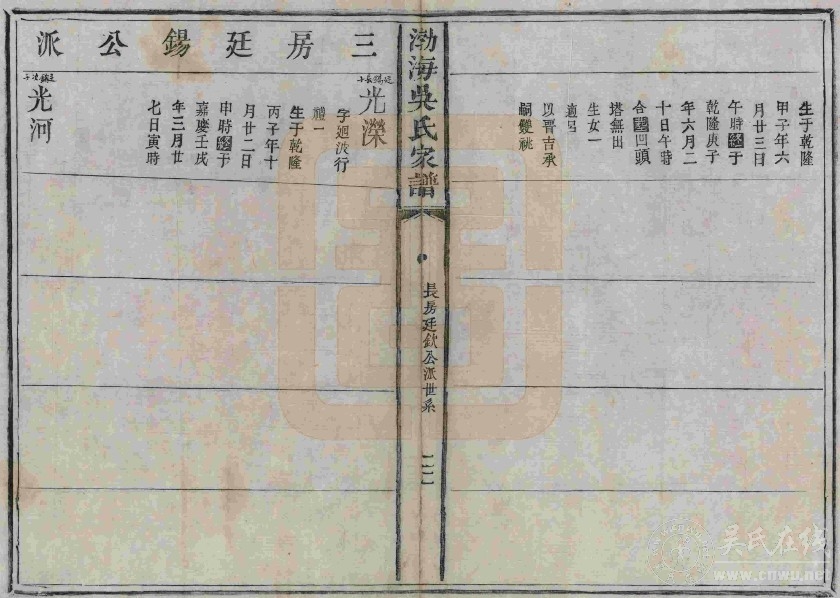 生于乾隆
甲子年六
月廿三日
午時終于
乾隆庚子
年六月二
十日午時
合凹頭
塔無出
生女一
適呂
以晋吉承
嗣雙祧
渤海吳氏家譜
長房廷欽公派世系
三房廷錫公派
光濚
字廻波行
禮一
生于乾隆
丙子年十
月廿二日
申時終于
嘉慶壬戌
年三月廿
七日寅時
光河
吴氏在线
www.cnwu.net